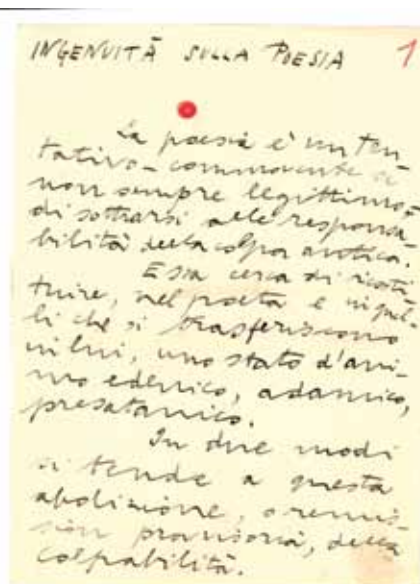 INGENUITÀ SULLA POESIA 1
La poesia è un ten-
tativo – commovente e
non sempre legittimo –
di sottrarsi alle responsa
bilità della colpa
Essa cerca di ricosti
tuire, nel poeta e in quel
li che si trasferiscono
in lui, uno stato d'ani-
mo edenico, adamico,
presatanico.
In due modi
si tende a questa
abolizione, o remis-
sion provvisoria, della
colpabilità.